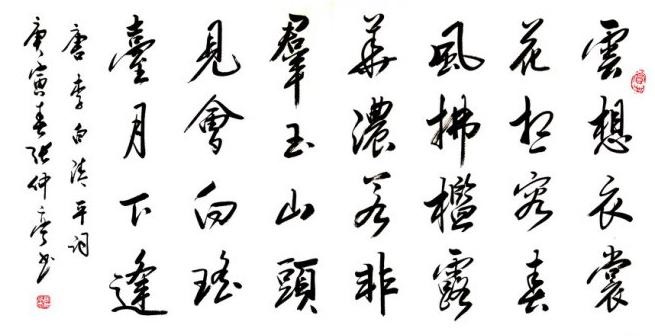 雲想衣裳
花想容春
風拂檻露
華濃若非
羣玉山頭
見會向瑤
臺月下逢
唐李白清平詞
庚寅春張仲亭書